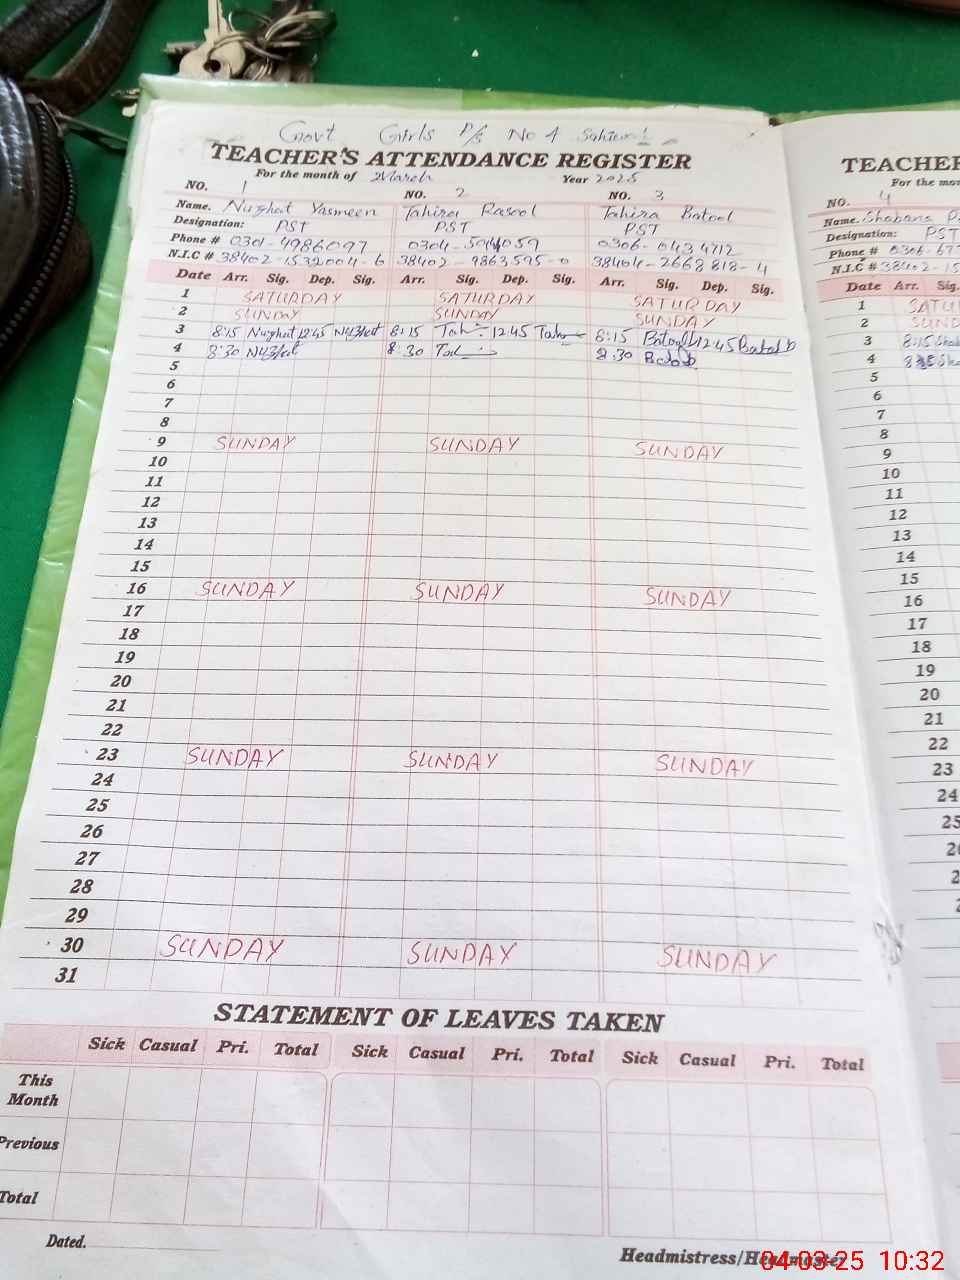 Govt Girls P/S No 4 Sahiwal
TEACHER'S ATTENDANCE REGISTER
For the month of March Year 2025
NO. 1 NO. 2 NO. 3
Name. Nughat Yasmeen Tahira Rasool Tahira Batool
Designation: PST PST PST
Phone # 0301-4986097 0306-0434712
N.I.C # 38402-1532004-6 38402-9863595-0 38404-2668818-4
Date Arr. Sig. Dep. Sig. Arr. Sig. Dep. Sig. Arr. Sig. Dep. Sig.
1 SATURDAY SATURDAY SATURDAY
2 SUNDAY SUNDAY SUNDAY
3 8:15 Nughat 12:45 Nughat 8:15 Tah 12:45 8:15 Batool 12:45
4 8:30 8:30 8:30
5
6
7
8
9 SUNDAY SUNDAY SUNDAY
10
11
12
13
14
15
16 SUNDAY SUNDAY SUNDAY
17
18
19
20
21
22
23 SUNDAY SUNDAY SUNDAY
24
25
26
27
28
29
30 SUNDAY SUNDAY SUNDAY
31
STATEMENT OF LEAVES TAKEN
Sick Casual Pri. Total Sick Casual Pri. Total Sick Casual Pri. Total
This
Month
Previous
Total
Dated.
Headmistress/Headmaster
TEACHER
For the mo
NO. 4
Name. Shabana
Designation: PST
Phone # 0306-677
N.I.C # 38402-15
Date Arr. Sig.
1 SATU
2 SUND
3 8:15 Shab
4
5
6
7
8
9
10
11
12
13
14
15
16
17
18
19
20
21
22
23
24
25
04-03-25 10:32